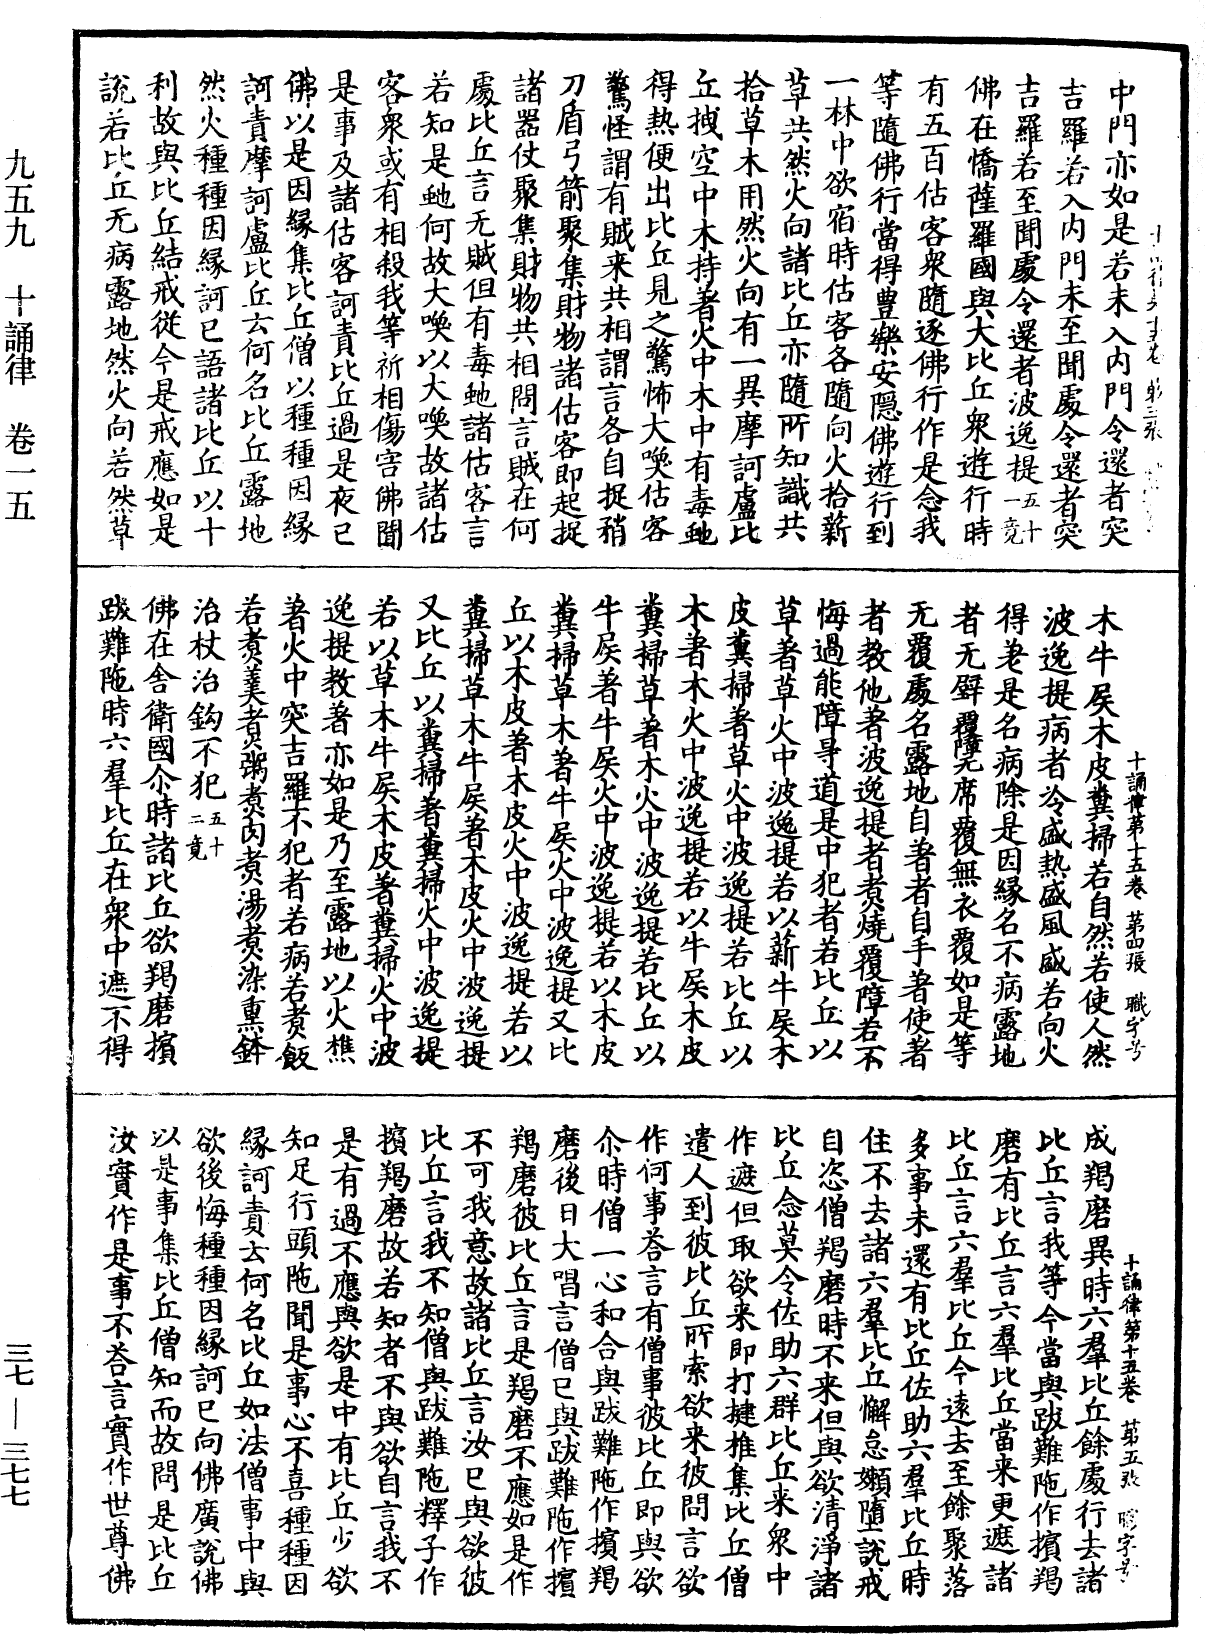 中門亦如是若未入內門令還者突
吉羅若入內門未至聞處令還者突
吉羅若至聞處令還者波逸提五十一竟
佛在憍薩羅國與大比丘衆遊行時
有五百估客衆隨逐佛行作是念我
等隨佛行當得豊樂安隱佛遊行到
一林中欲宿時估客各隨向火拾薪
草共然火向諸比丘亦隨所知識共
拾草木用然火向有一異摩訶盧比
丘拽空中木持著火中木中有毒虵
得熱便出比丘見之驚怖大喚估客
驚怪謂有賊来共相謂言各自捉矟
刀盾弓箭聚集財物諸估客即起捉
諸器仗聚集財物共相問言賊在何
處比丘言无賊但有毒虵諸估客言
若知是虵何故大喚以大喚故諸估
客衆或有相殺我等祈相傷害佛聞
是事及諸估客訶責比丘過是夜已
佛以是因緣集比丘僧以種種因緣
訶責摩訶盧比丘云何名比丘露地
然火種種因緣訶已語諸比丘以十
利故與比丘結戒從今是戒應如是
說若比丘无病露地然火向若然草
十誦律第十五卷 第四張 職字号
木牛屎木皮糞掃若自然若使人然
波逸提病者冷盛熱盛風盛若向火
得差是名病除是因緣名不病露地
者无壁覆障无席覆無衣覆如是等
无覆處名露地自著者自手著使著
者教他著波逸提者煑燒覆障若不
悔過能障㝵道是中犯者若比丘以
草著草火中波逸提若以薪牛屎木
皮糞掃著草火中波逸提若比丘以
木著木火中波逸提若以牛屎木皮
糞掃草著木火中波逸提若比丘以
牛屎著牛屎火中波逸提若以木皮
糞掃草木著牛屎火中波逸提又比
丘以木皮著木皮火中波逸提若以
糞掃草木牛屎著木皮火中波逸提
又比丘以糞掃著糞掃火中波逸提
若以草木牛屎木皮著糞掃火中波
逸提教著亦如是乃至露地以火樵
著火中突吉羅不犯者若病若煑飯
若煑羹煑粥煑肉煑湯煑染熏鉢
治杖治鈎不犯五十二竟
佛在舍衛國尒時諸比丘欲羯磨擯
跋難陁時六羣比丘在衆中遮不得
十誦律第十五卷 第五張 職字号
成羯磨異時六羣比丘餘處行去諸
比丘言我等今當與跋難陁作擯羯
磨有比丘言六羣比丘當来更遮諸
比丘言六羣比丘今遠去至餘聚落
多事未還有比丘佐助六羣比丘時
住不去諸六羣比丘懈怠嬾墮說戒
自恣僧羯磨時不来但與欲清淨諸
比丘念莫令佐助六群比丘来衆中
作遮但取欲来即打揵椎集比丘僧
遣人到彼比丘所索欲来彼問言欲
作何事荅言有僧事彼比丘即與欲
尒時僧一心和合與跋難陁作擯羯
磨後日大唱言僧已與跋難陁作擯
羯磨彼比丘言是羯磨不應如是作
不可我意故諸比丘言汝已與欲彼
比丘言我不知僧與跋難陁釋子作
擯羯磨故若知者不與欲自言我不
是有過不應與欲是中有比丘少欲
知足行頭陁聞是事心不喜種種因
緣訶責云何名比丘如法僧事中與
欲後悔種種因緣訶已向佛廣說佛
以是事集比丘僧知而故問是比丘
汝實作是事不荅言實作世尊佛
九五九 十誦律 卷一五
三七 — 三七七